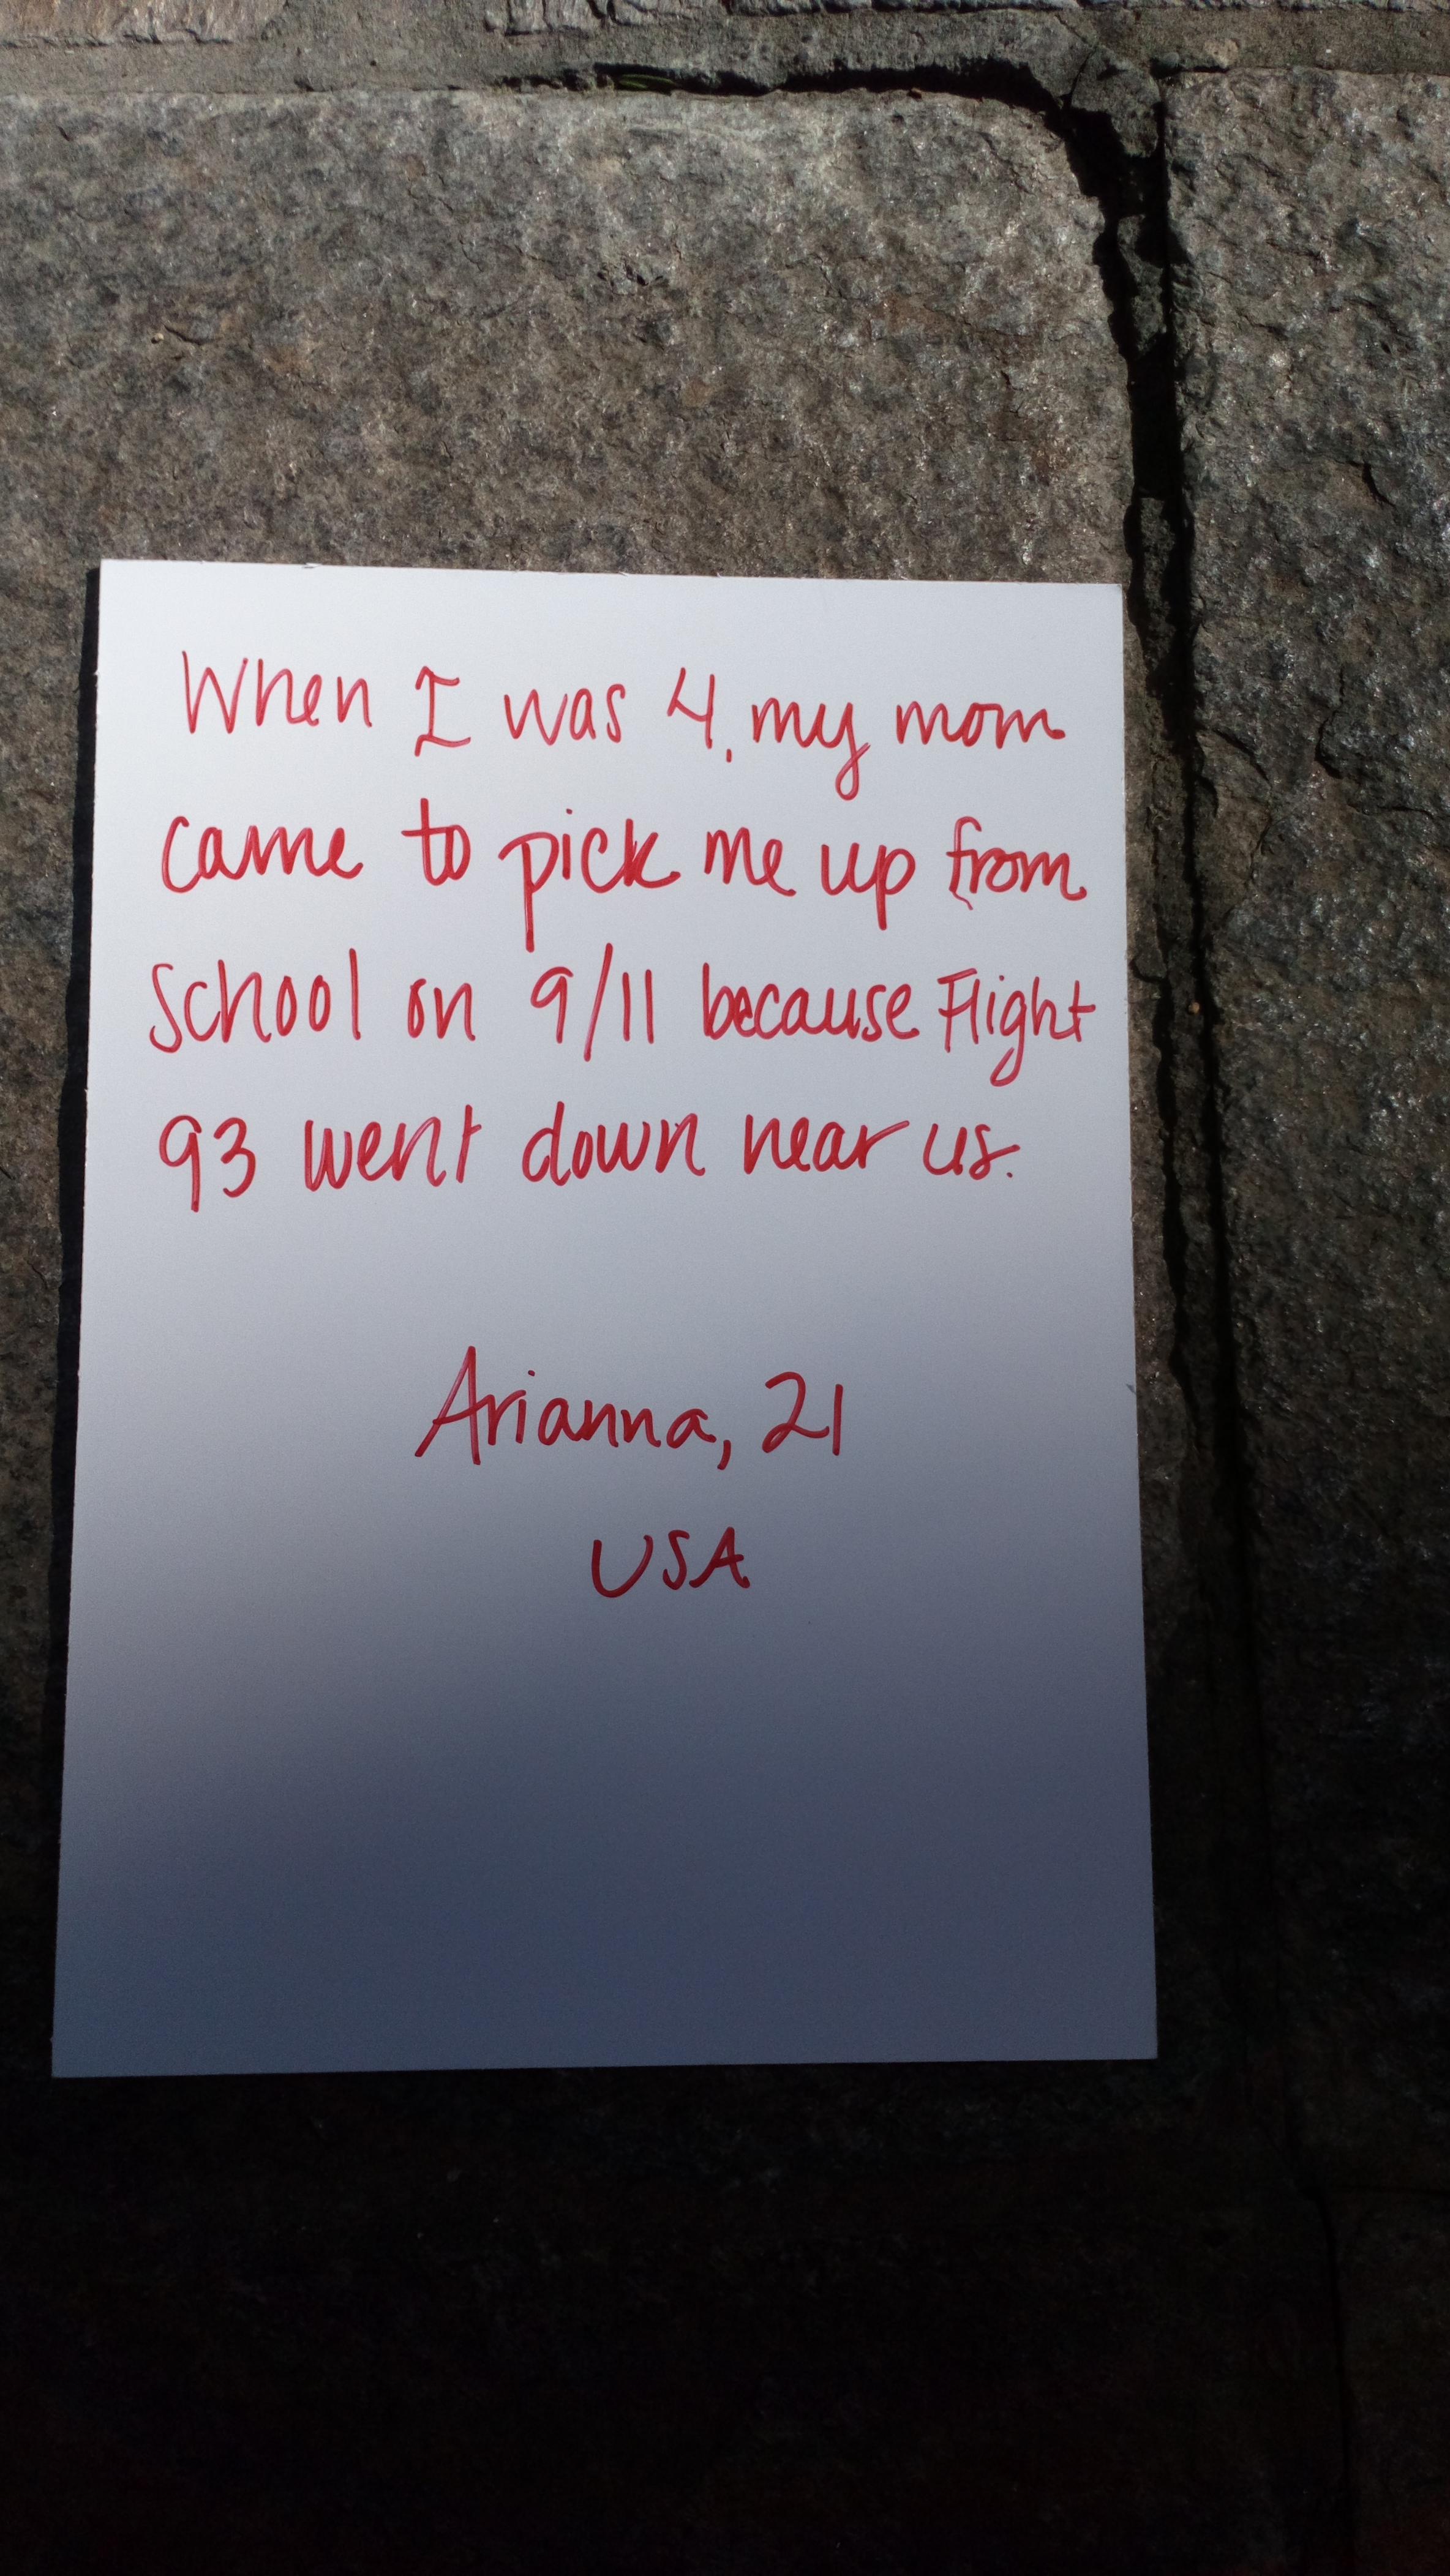 When I was 4, my mom
came to pick me up from
school on 9/11 because Flight
93 went down near us.
Arianna, 21
USA